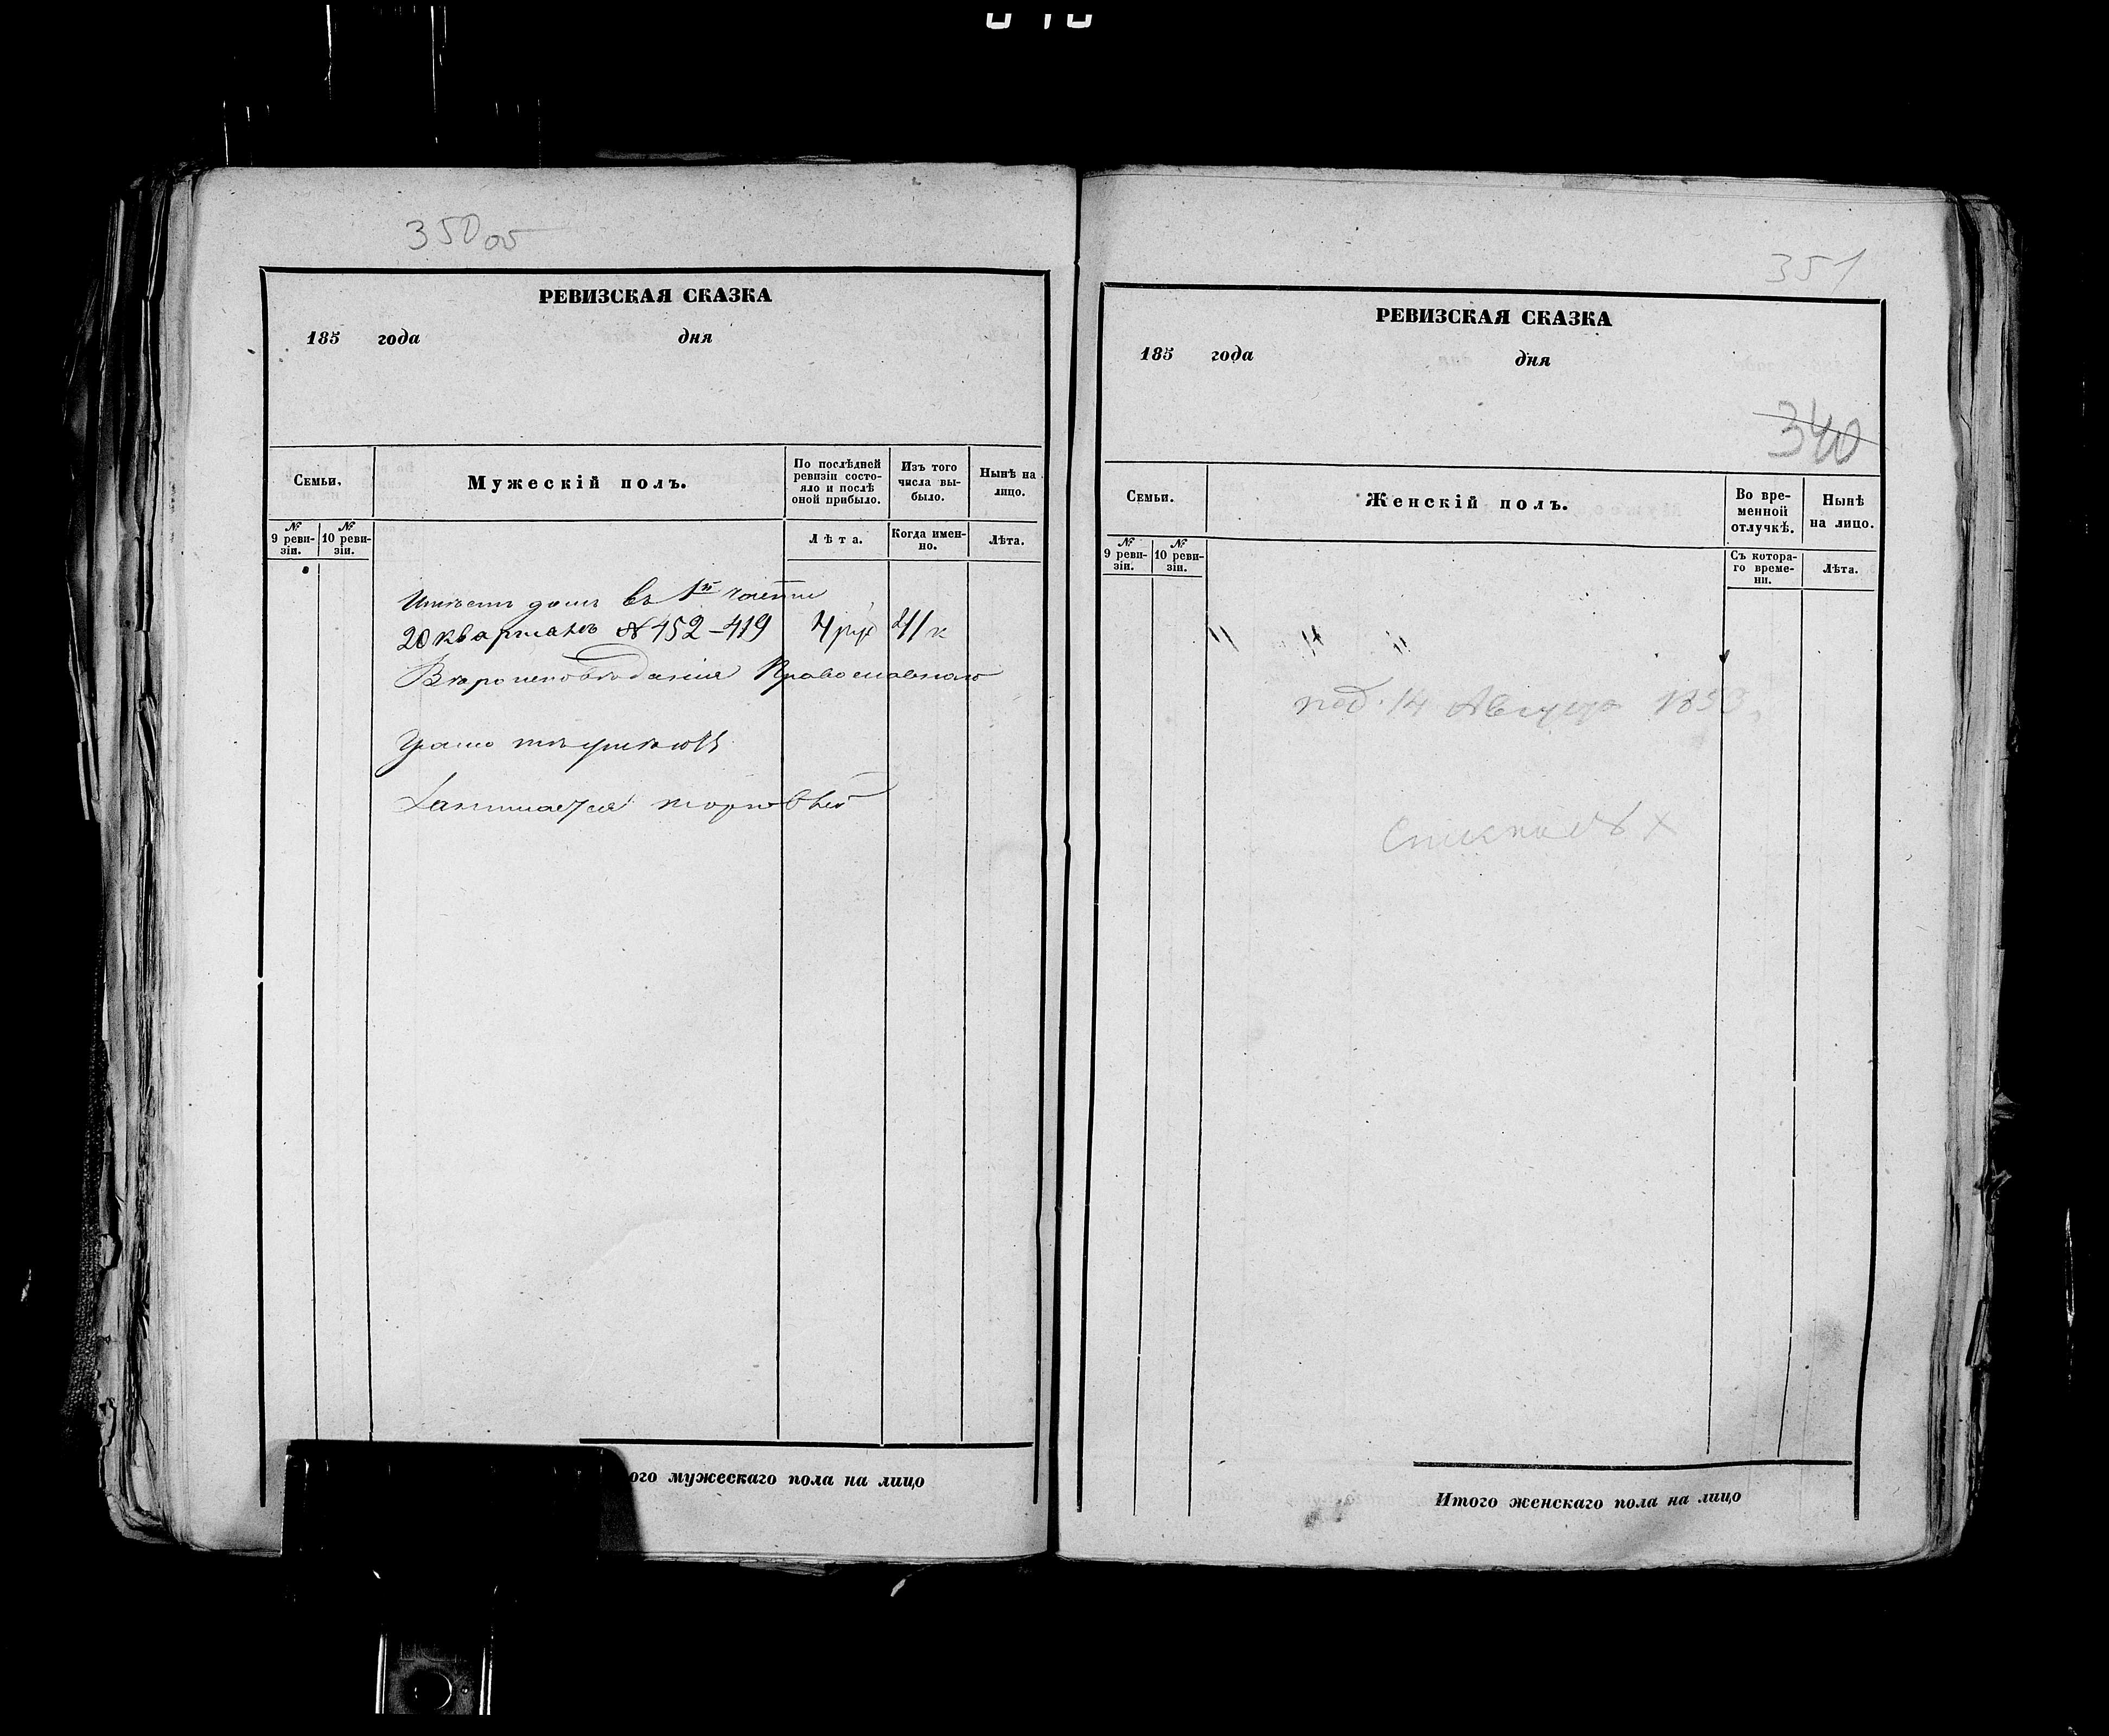 350об
РЕВИЗСКАЯ СКАЗКА
185 года дня
Семьи.
Мужескій полъ.
По послѣдней ревизіи состояло и послѣ оной прибыло.
Изъ того числа выбыло.
Нынѣ на лицо.
№ 9 ревизіи.
№ 10 ревизіи.
Лѣта.
Когда именно.
Лѣта.
Имѣетъ домъ въ 1й части
20 кварталъ № 452-419 4 руб 41 к
Вѣроисповѣданія Православнаго
Грамотѣ
Занимается торговлей
ого мужескаго пола на лицо
351
РЕВИЗСКАЯ СКАЗКА
185 года дня
340
Семьи.
Женскій полъ.
Во временной отлучкѣ.
Нынѣ на лицо.
№ 9 ревизіи.
№ 10 ревизіи.
Съ котораго времени.
Лѣта.
" " "
под. 14 Августа 1858
Итого женскаго пола на лицо